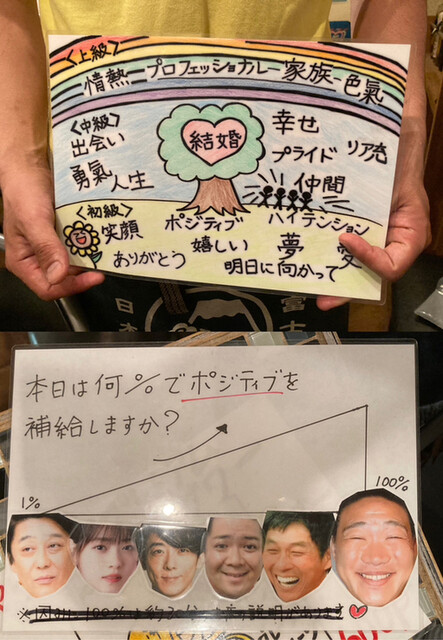 <上級>
情熱 プロフェッショナル 家族 色氣
<中級>
出会い
勇氣 人生
結婚
幸せ
プライド リア充
仲間
<初級>
笑顔
ありがとう
ポジティブ
嬉しい
ハイテンション
夢 愛
明日に向かって
本日は何%でポジティブを
補給しますか?
1%
100%